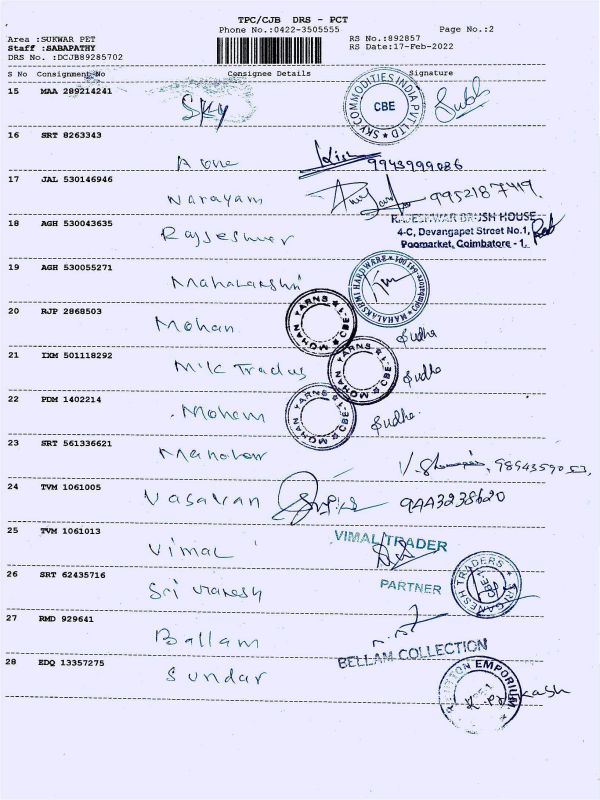 TPC/CJB DRS - PCT
Phone No.:0422-3505555 Page No.:2
Area :SUKWAR PET RS No.:892857
Staff :SABAPATHY RS Date:17-Feb-2022
DRS No. :DCJB89285702
S No Consignment No Consignee Details Signature
15 MAA 289214241
Sky SKY COMMODITIES INDIA PVT LTD CBE Subh
16 SRT 8263343
A one 9943999086
17 JAL 530146946
Narayam 9952187419.
18 AGH 530043635 RAJESHWAR BRUSH HOUSE
4-C, Devangapet Street No.1,
Rajjeshwer Poomarket, Coimbatore - 1.
19 AGH 530055271
Mahalakshmi MAHALAKSHMI HARDWARE Coimbatore-641 001
20 RJP 2868503
Mohan MOHAN YARNS CBE-1 Sudha
21 IXM 501118292
M.K Tradus MOHAN YARNS CBE-1 Sudha
22 PDM 1402214
Mohan MOHAN YARNS CBE-1 Sudha
23 SRT 561336621
Manohar
24 TVM 1061005
Vasavan 9443238620
25 TVM 1061013 VIMAL TRADER
Vimal
26 SRT 62435716 PARTNER
Sri Ganesh SRI GANESH TRADERS CBE-1
27 RMD 929641
Ballam BELLAM COLLECTION
28 EDQ 13357275
Sundar BUTTON EMPORIUM